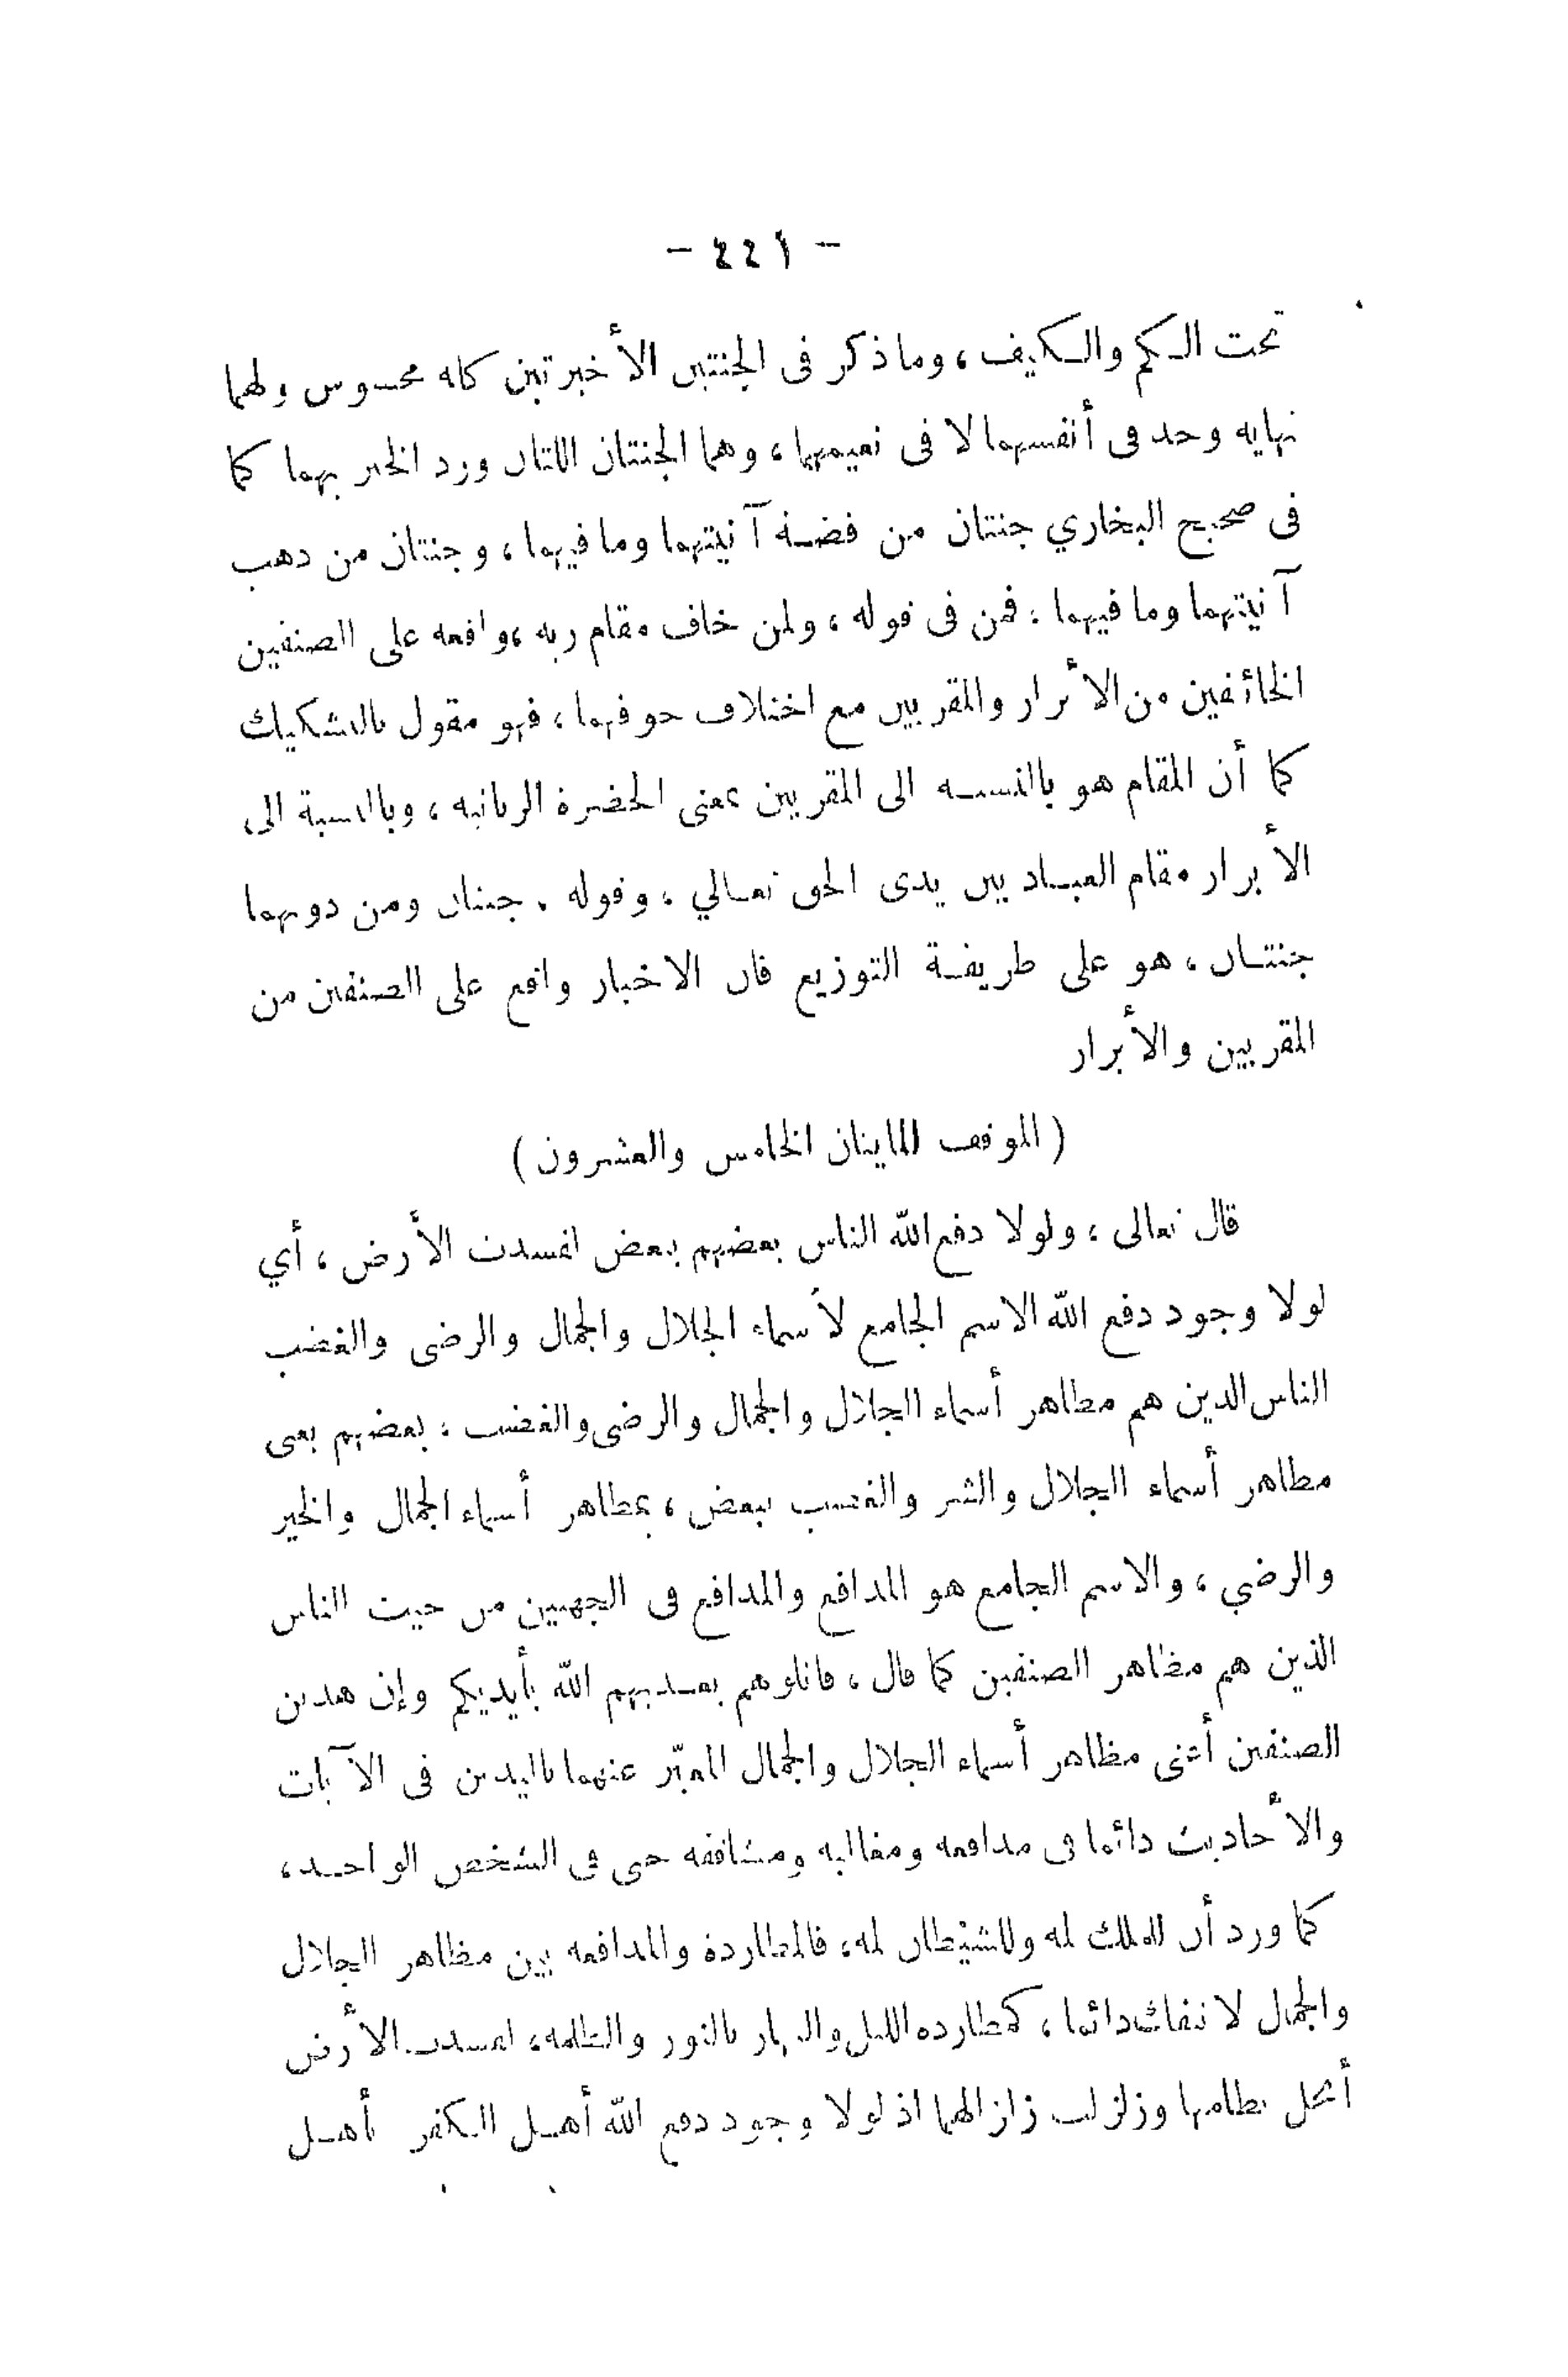 - ٤٤١ -
تحت الكم والكيف ، وما ذكر فى الجنتين الأخيرتين كله محسوس ولهما
نهاية وحد فى أنفسهما لا فى نعيمهما ، وهما الجنتان اللتان ورد الخبر بهما كما
فى صحيح البخاري جنتان من فضة آنيتهما وما فيهما ، وجنتان من ذهب
آنيتهما وما فيهما : فمن فى قوله ، ولمن خاف مقام ربه ، واقعة على الصنفين
الخائفين من الأبرار والمقربين مع اختلاف خوفهما ، فهو مقول بالتشكيك
كما أن المقام هو بالنسبة الى المقربين بمعنى الحضرة الربانية ، وبالنسبة الى
الأبرار مقام العباد بين يدى الحق تعالي ، وقوله . جنتان ومن دونهما
جنتان ، هو على طريقة التوزيع فان الاخبار واقع على الصنفين من
المقربين والأبرار
( الموقف المايتان الخامس والعشرون )
قال تعالى ، ولولا دفع الله الناس بعضهم ببعض لفسدت الأرض ، أي
لولا وجود دفع الله الاسم الجامع لأسماء الجلال والجمال والرضى والغضب
الناس الذين هم مظاهر أسماء الجلال والجمال والرضى والغضب ، بعضهم يعنى
مظاهر أسماء الجلال والشر والغضب ببعض ، بمظاهر أسماء الجمال والخير
والرضي ، والاسم الجامع هو المدافع والمدافع فى الجهتين من حيث الناس
الذين هم مظاهر الصنفين كما قال ، قاتلوهم يعذبهم الله بأيديكم وإن هذين
الصنفين أعنى مظاهر أسماء الجلال والجمال المعبّر عنهما باليدين فى الآيات
والأحاديث دائما فى مدافعة ومغالبة ومشاققة حتى فى الشخص الواحد ،
كما ورد أن للملك لمه وللشيطان لمه ، فالمطاردة والمدافعة بين مظاهر الجلال
والجمال لا تنفك دائما ، كمطاردة الليل والنهار بالنور والظلمة ، لفسدت الأرض
أنحل نظامها وزلزلت زلزالهما اذ لولا وجود دفع الله أهل الكفر بأهل